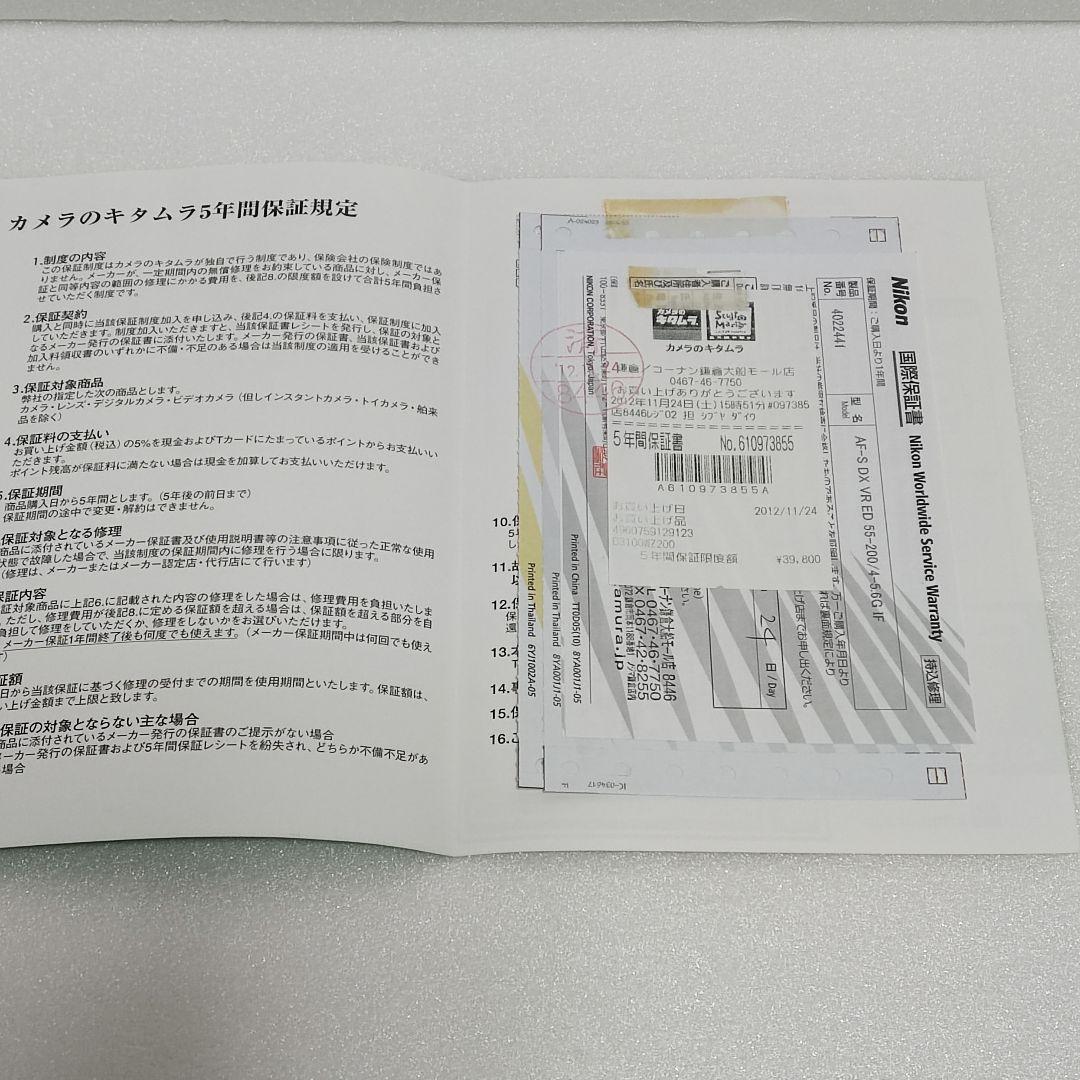 カメラのキタムラ5年間保証規定
1.制度の内容
この保証制度はカメラのキタムラが独自で行う制度であり、保険会社の保険制度ではあ
りません。メーカーが、一定期間内の無償修理をお約束している商品に対し、メーカー保
証と同等内容の範囲の修理にかかる費用を、後記8.の限度額を設けて合計5年間負担さ
せていただく制度です。
2.保証契約
購入と同時に当該保証制度加入を申し込み、後記4.の保証料を支払い、保証制度に加入
していただきます。制度加入いただきますと、当該保証書レシートを発行し、保証の対象と
なるメーカー発行の保証書に添付いたします。メーカー発行の保証書、当該保証書および
加入料領収書のいずれかに不備・不足のある場合は当該制度の適用を受けることができ
ません。
3.保証対象商品
弊社の指定した次の商品とします。
カメラ・レンズ・デジタルカメラ・ビデオカメラ(但しインスタントカメラ・トイカメラ・舶来
品を除く)
4.保証料の支払い
お買い上げ金額(税込)の5%を現金およびTカードにたまっているポイントからお支払いい
ただきます。
ポイント残高が保証料に満たない場合は現金を加算してお支払いいただけます。
5.保証期間
商品購入日から5年間とします。(5年後の前日まで)
保証期間の途中で変更・解約はできません。
保証対象となる修理
商品に添付されているメーカー保証書及び使用説明書等の注意事項に従った正常な使用
状態で故障した場合で、当該制度の保証期間内に修理を行う場合に限ります。
(修理は、メーカーまたはメーカー認定店・代行店にて行います)
保証内容
証対象商品に上記6.に記載された内容の修理をした場合は、修理費用を負担いたしま
。ただし、修理費用が後記8.に定める保証額を超える場合は、保証額を超える部分を自
負担して修理をしていただくか、修理をしないかをお選びいただけます。
メーカー保証1年間終了後も何度でも使えます。(メーカー保証期間中は何回でも使え
す)
証額
日から当該保証に基づく修理の受付までの期間を使用期間といたします。保証額は、
い上げ金額まで上限と致します。
保証の対象とならない主な場合
商品に添付されているメーカー発行の保証書のご提示がない場合
メーカー発行の保証書および5年間保証レシートを紛失され、どちらか不備不足があ
場合
10.
11.
12.
13.
14.
15.
16.
カメラのキタムラ
コーナン鎌倉大船モール店
0467-46-7750
お買い上げありがとうございます
2012年11月24日(土)15時51分#097385
店8446レジ02 担 シブヤ ダイワ
5年間保証書 No.610973855
A610973855A
お買い上げ日 2012/11/24
お買い上げ品
4960759129123
03100W7200
5年間保証限度額 ¥39,800
Nikon
国際保証書 Nikon Worldwide Service Warranty
持込修理
保証期間:ご購入日より1年間
製品番号 No. 4022441
型名 Model AF-S DX VR ED 55-200/4-5.6G IF
24 日/Day
NIKON CORPORATION, Tokyo Japan
Printed in China TT0D05(10) 8YA001J1-05
Printed in Thailand 8YA001J1-05
Printed in Thailand 6YJ1002A-05
ーナン鎌倉大船モール店 8446
L 0467-46-7750
X 0467-42-8255
amura.jp
IC-034617